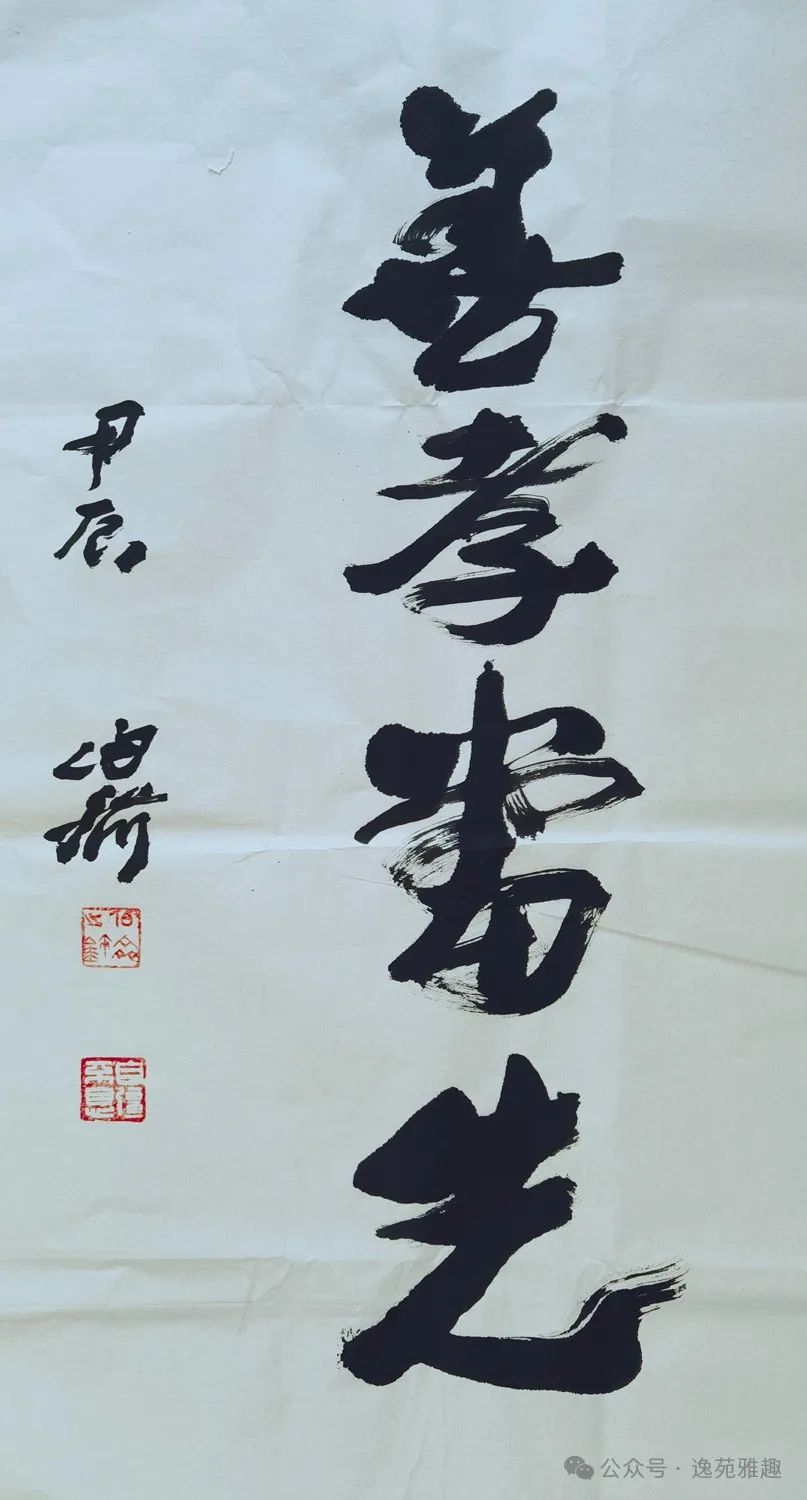 善孝当先
甲辰
公众号·逸苑雅趣